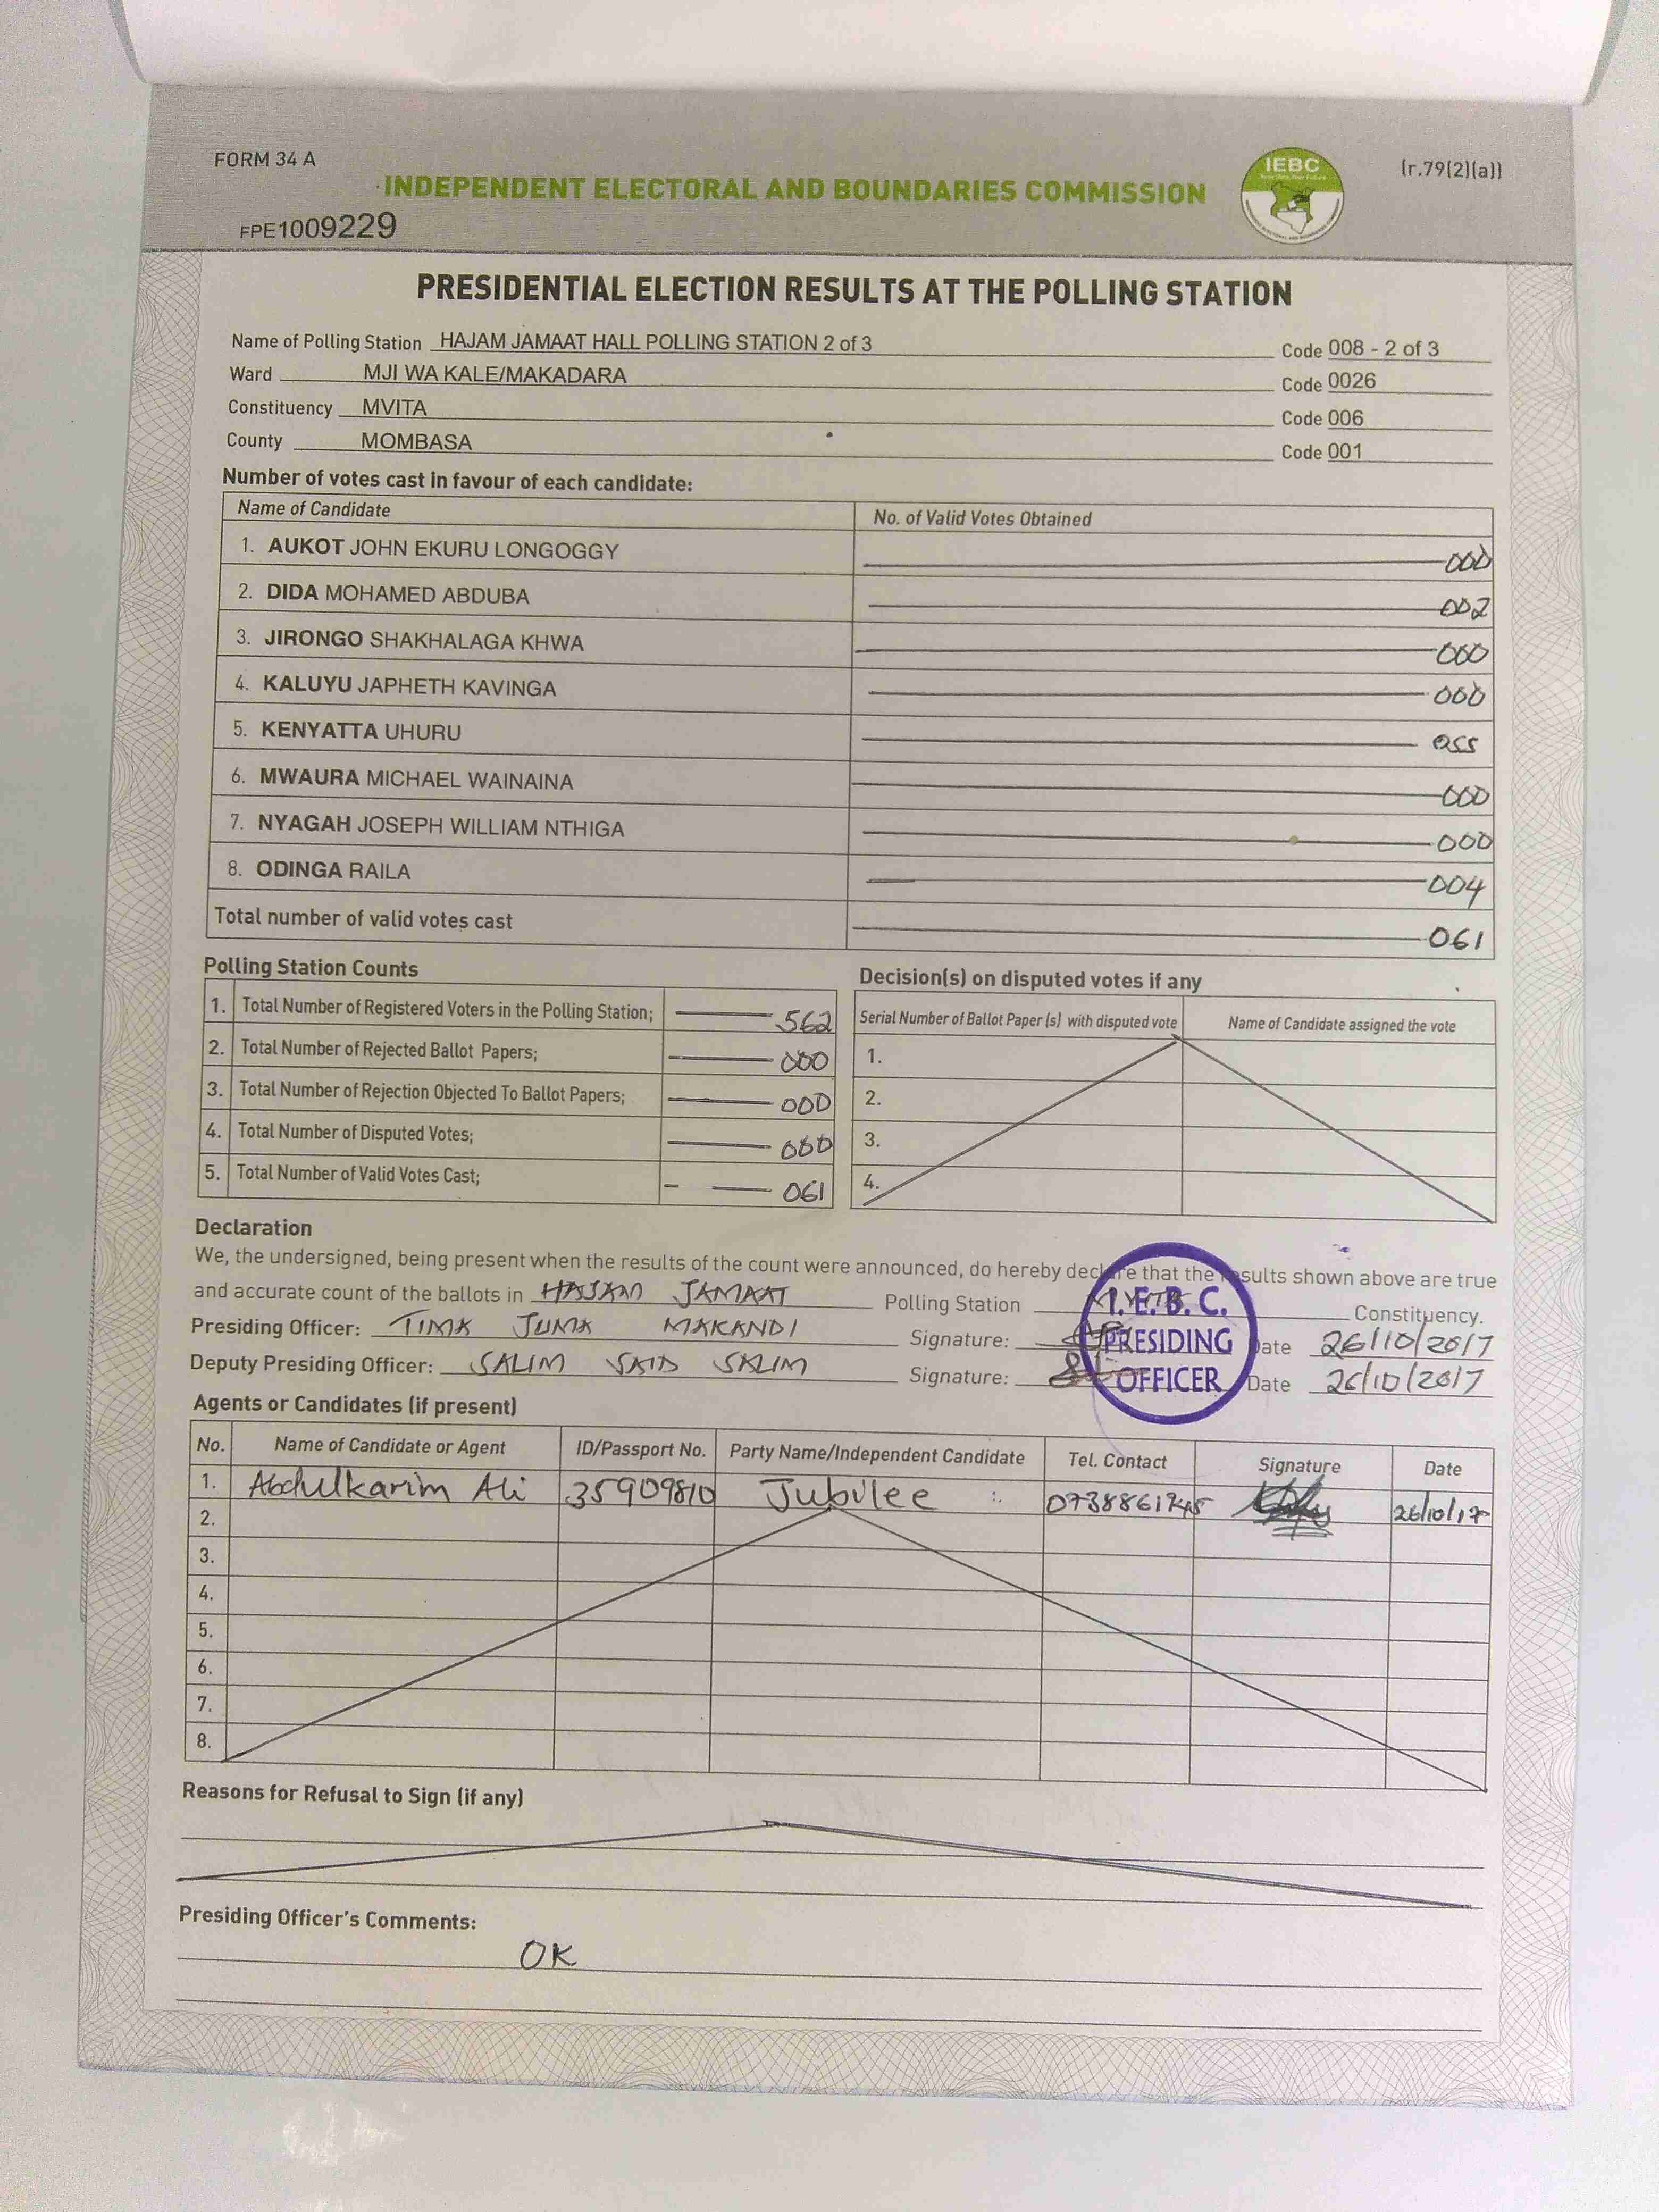 FORM 34 A
(r.79(2)(a))
IEBC
INDEPENDENT ELECTORAL AND BOUNDARIES COMMISSION
FPE1009229
PRESIDENTIAL ELECTION RESULTS AT THE POLLING STATION
Name of Polling Station HAJAM JAMAAT HALL POLLING STATION 2 of 3 Code 008 - 2 of 3
Ward MJI WA KALE/MAKADARA Code 0026
Constituency MVITA Code 006
County MOMBASA Code 001
Number of votes cast in favour of each candidate:
Name of Candidate No. of Valid Votes Obtained
1. AUKOT JOHN EKURU LONGOGGY 000
2. DIDA MOHAMED ABDUBA 002
3. JIRONGO SHAKHALAGA KHWA 000
4. KALUYU JAPHETH KAVINGA 000
5. KENYATTA UHURU 055
6. MWAURA MICHAEL WAINAINA 000
7. NYAGAH JOSEPH WILLIAM NTHIGA 000
8. ODINGA RAILA 004
Total number of valid votes cast 061
Polling Station Counts
1. Total Number of Registered Voters in the Polling Station; 562
2. Total Number of Rejected Ballot Papers; 000
3. Total Number of Rejection Objected To Ballot Papers; 000
4. Total Number of Disputed Votes; 000
5. Total Number of Valid Votes Cast; 061
Decision(s) on disputed votes if any
Serial Number of Ballot Paper (s) with disputed vote Name of Candidate assigned the vote
1.
2.
3.
4.
Declaration
We, the undersigned, being present when the results of the count were announced, do hereby declare that the results shown above are true
and accurate count of the ballots in HAJAM JAMAAT Polling Station MVITA Constituency.
Presiding Officer: TIMA JUMA MAKANDI Signature: Date 26/10/2017
Deputy Presiding Officer: SALIM SAID SALIM Signature: Date 26/10/2017
I.E.B.C.
PRESIDING
OFFICER
Agents or Candidates (if present)
No. Name of Candidate or Agent ID/Passport No. Party Name/Independent Candidate Tel. Contact Signature Date
1. Abdulkarim Ali 35909810 Jubilee 26/10/17
2.
3.
4.
5.
6.
7.
8.
Reasons for Refusal to Sign (if any)
Presiding Officer's Comments:
OK